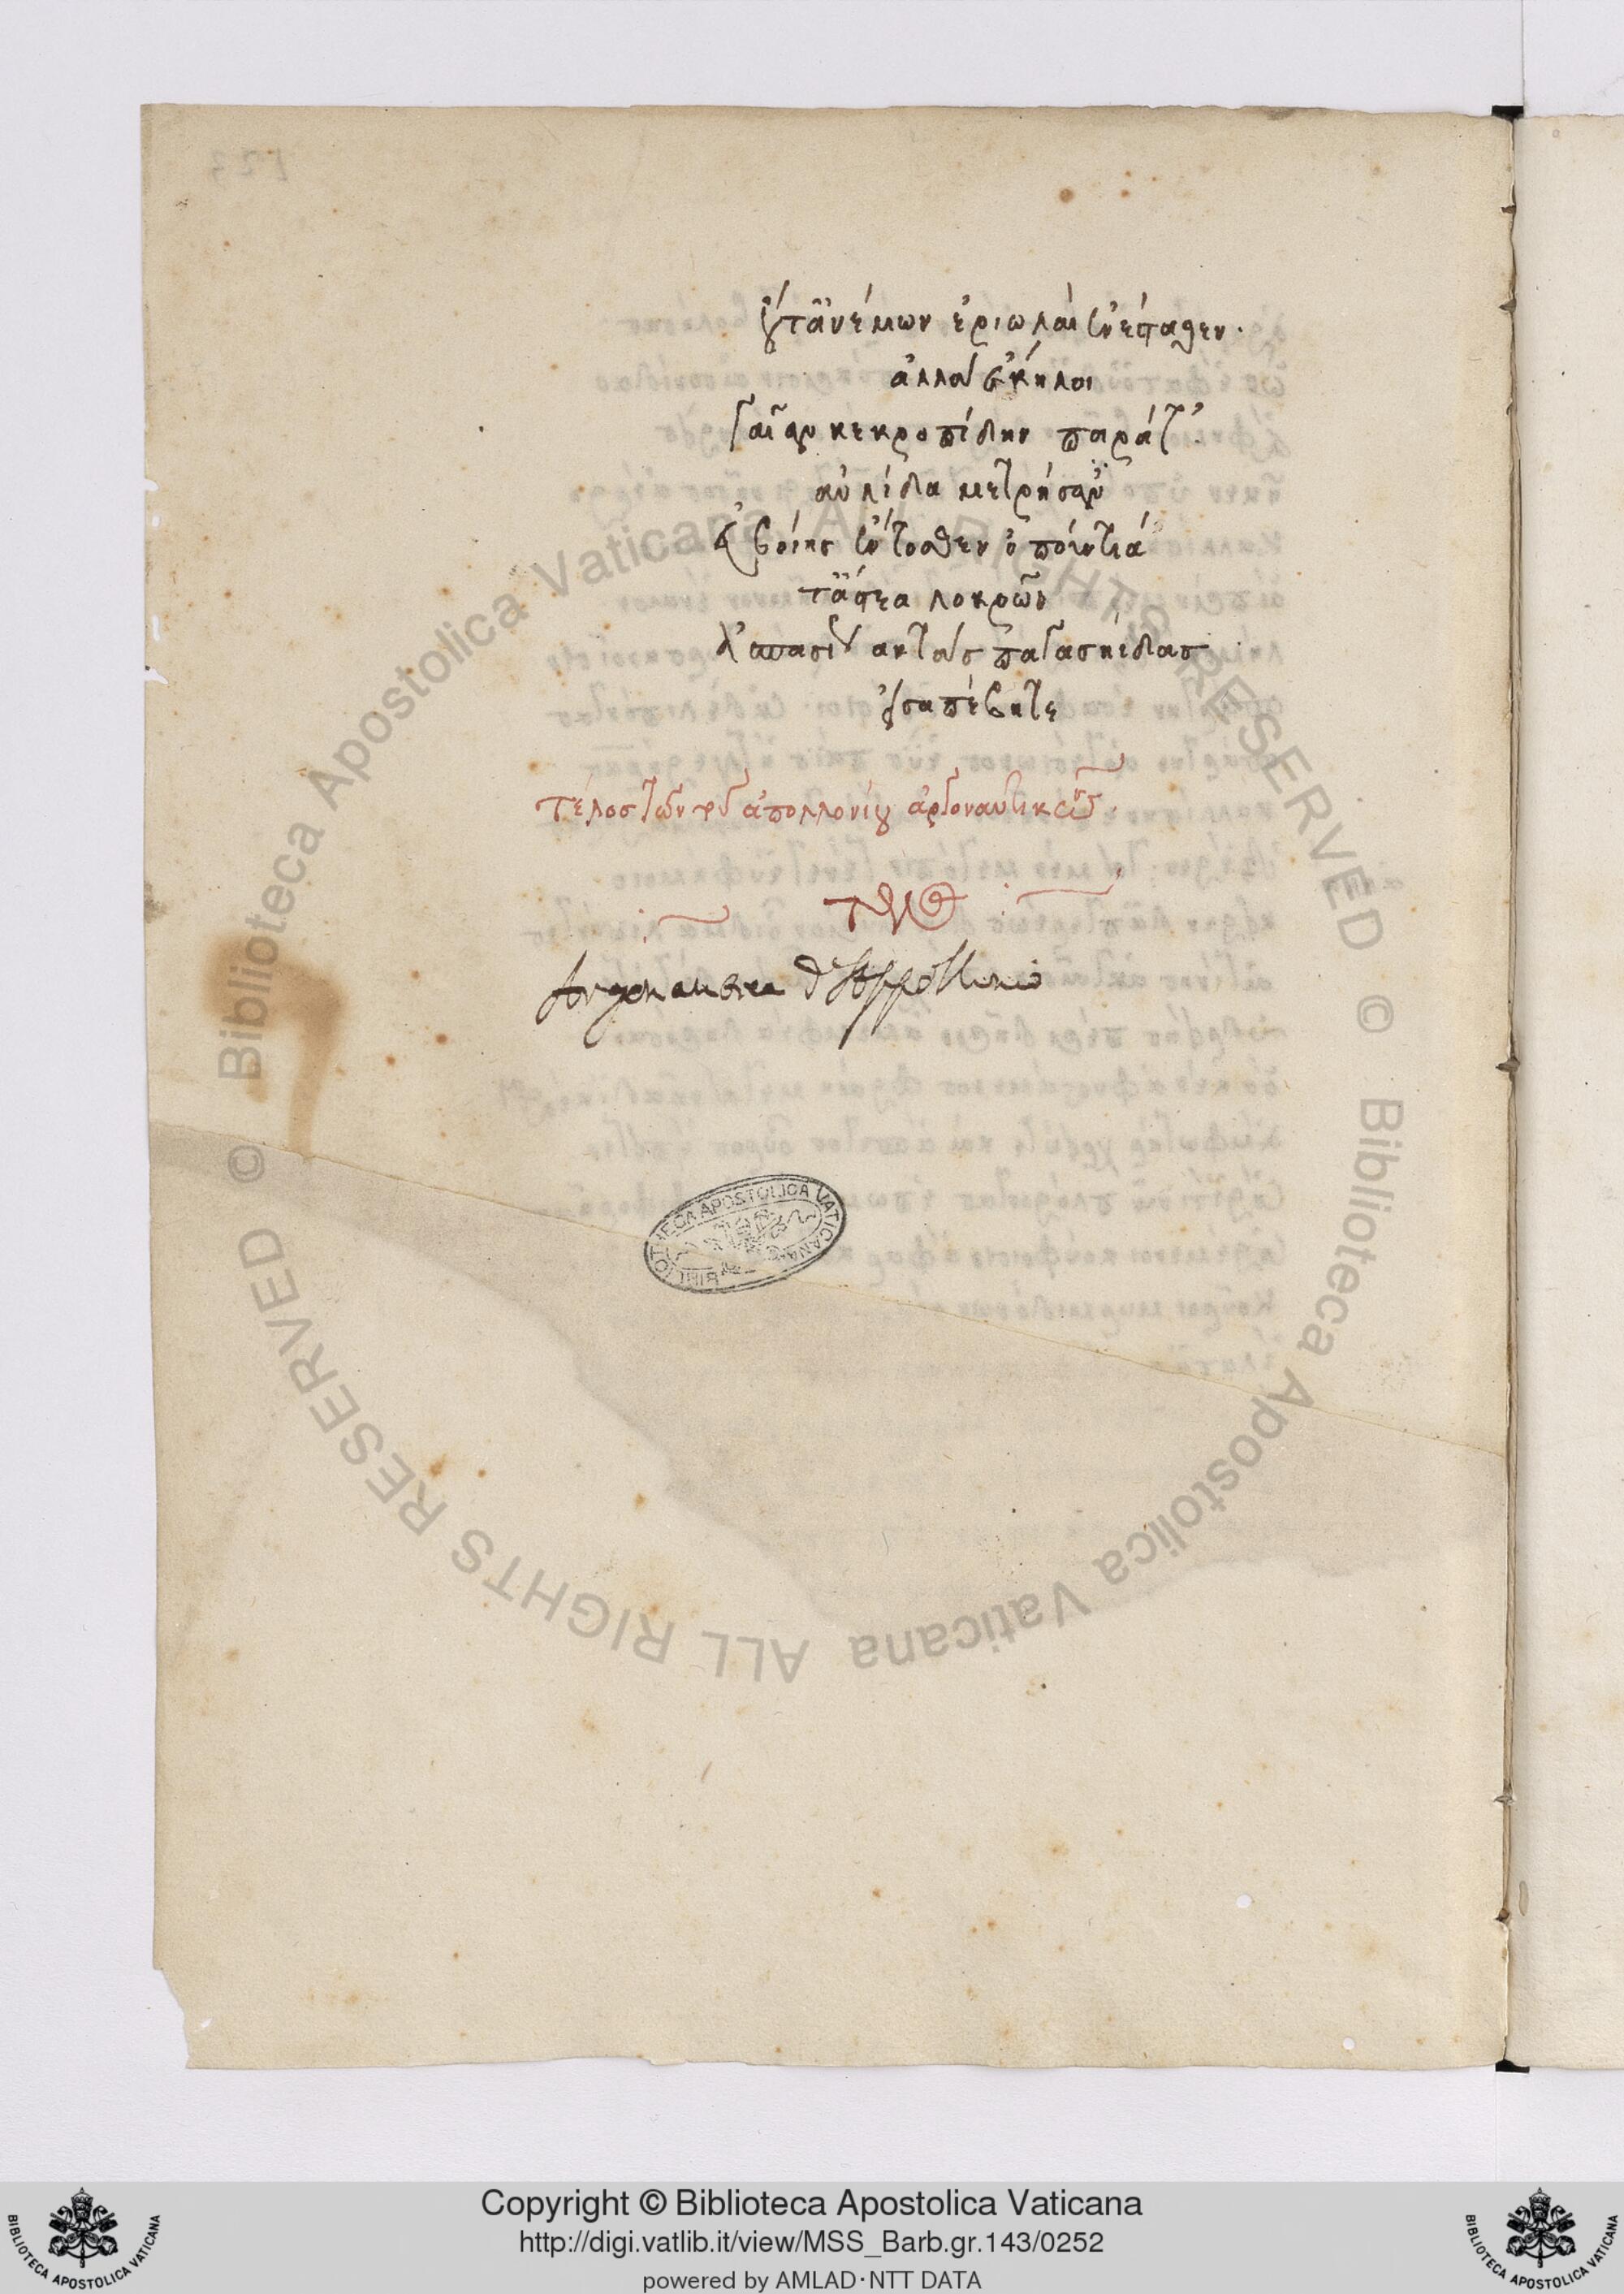 οὔτ' ἀνέμων ἐριῶλαι ἐνέσταθεν·
ἀλλὰ ἕκηλοι
γαῖαν κεκροπίδην παρά τ'
αὐλίδα μετρήσαν
εὐβοίης ἔντοσθεν ὀπούντιά
τ' ἄστεα λοκρῶν
ἀσπασίως ἀκτὰς παγασηΐδας
εἰσαπέβητε
τέλος τῶν τοῦ ἀπολλονίου ἀργοναυτικῶν.
Argonautica d'Appollonio
BIBLIOTHECA APOSTOLICA VATICANA
© Biblioteca Apostolica Vaticana ALL RIGHTS RESERVED
© Biblioteca Apostolica Vaticana ALL RIGHTS RESERVED
Copyright © Biblioteca Apostolica Vaticana
http://digi.vatlib.it/view/MSS_Barb.gr.143/0252
powered by AMLAD·NTT DATA
BIBLIOTECA APOSTOLICA VATICANA
BIBLIOTECA APOSTOLICA VATICANA